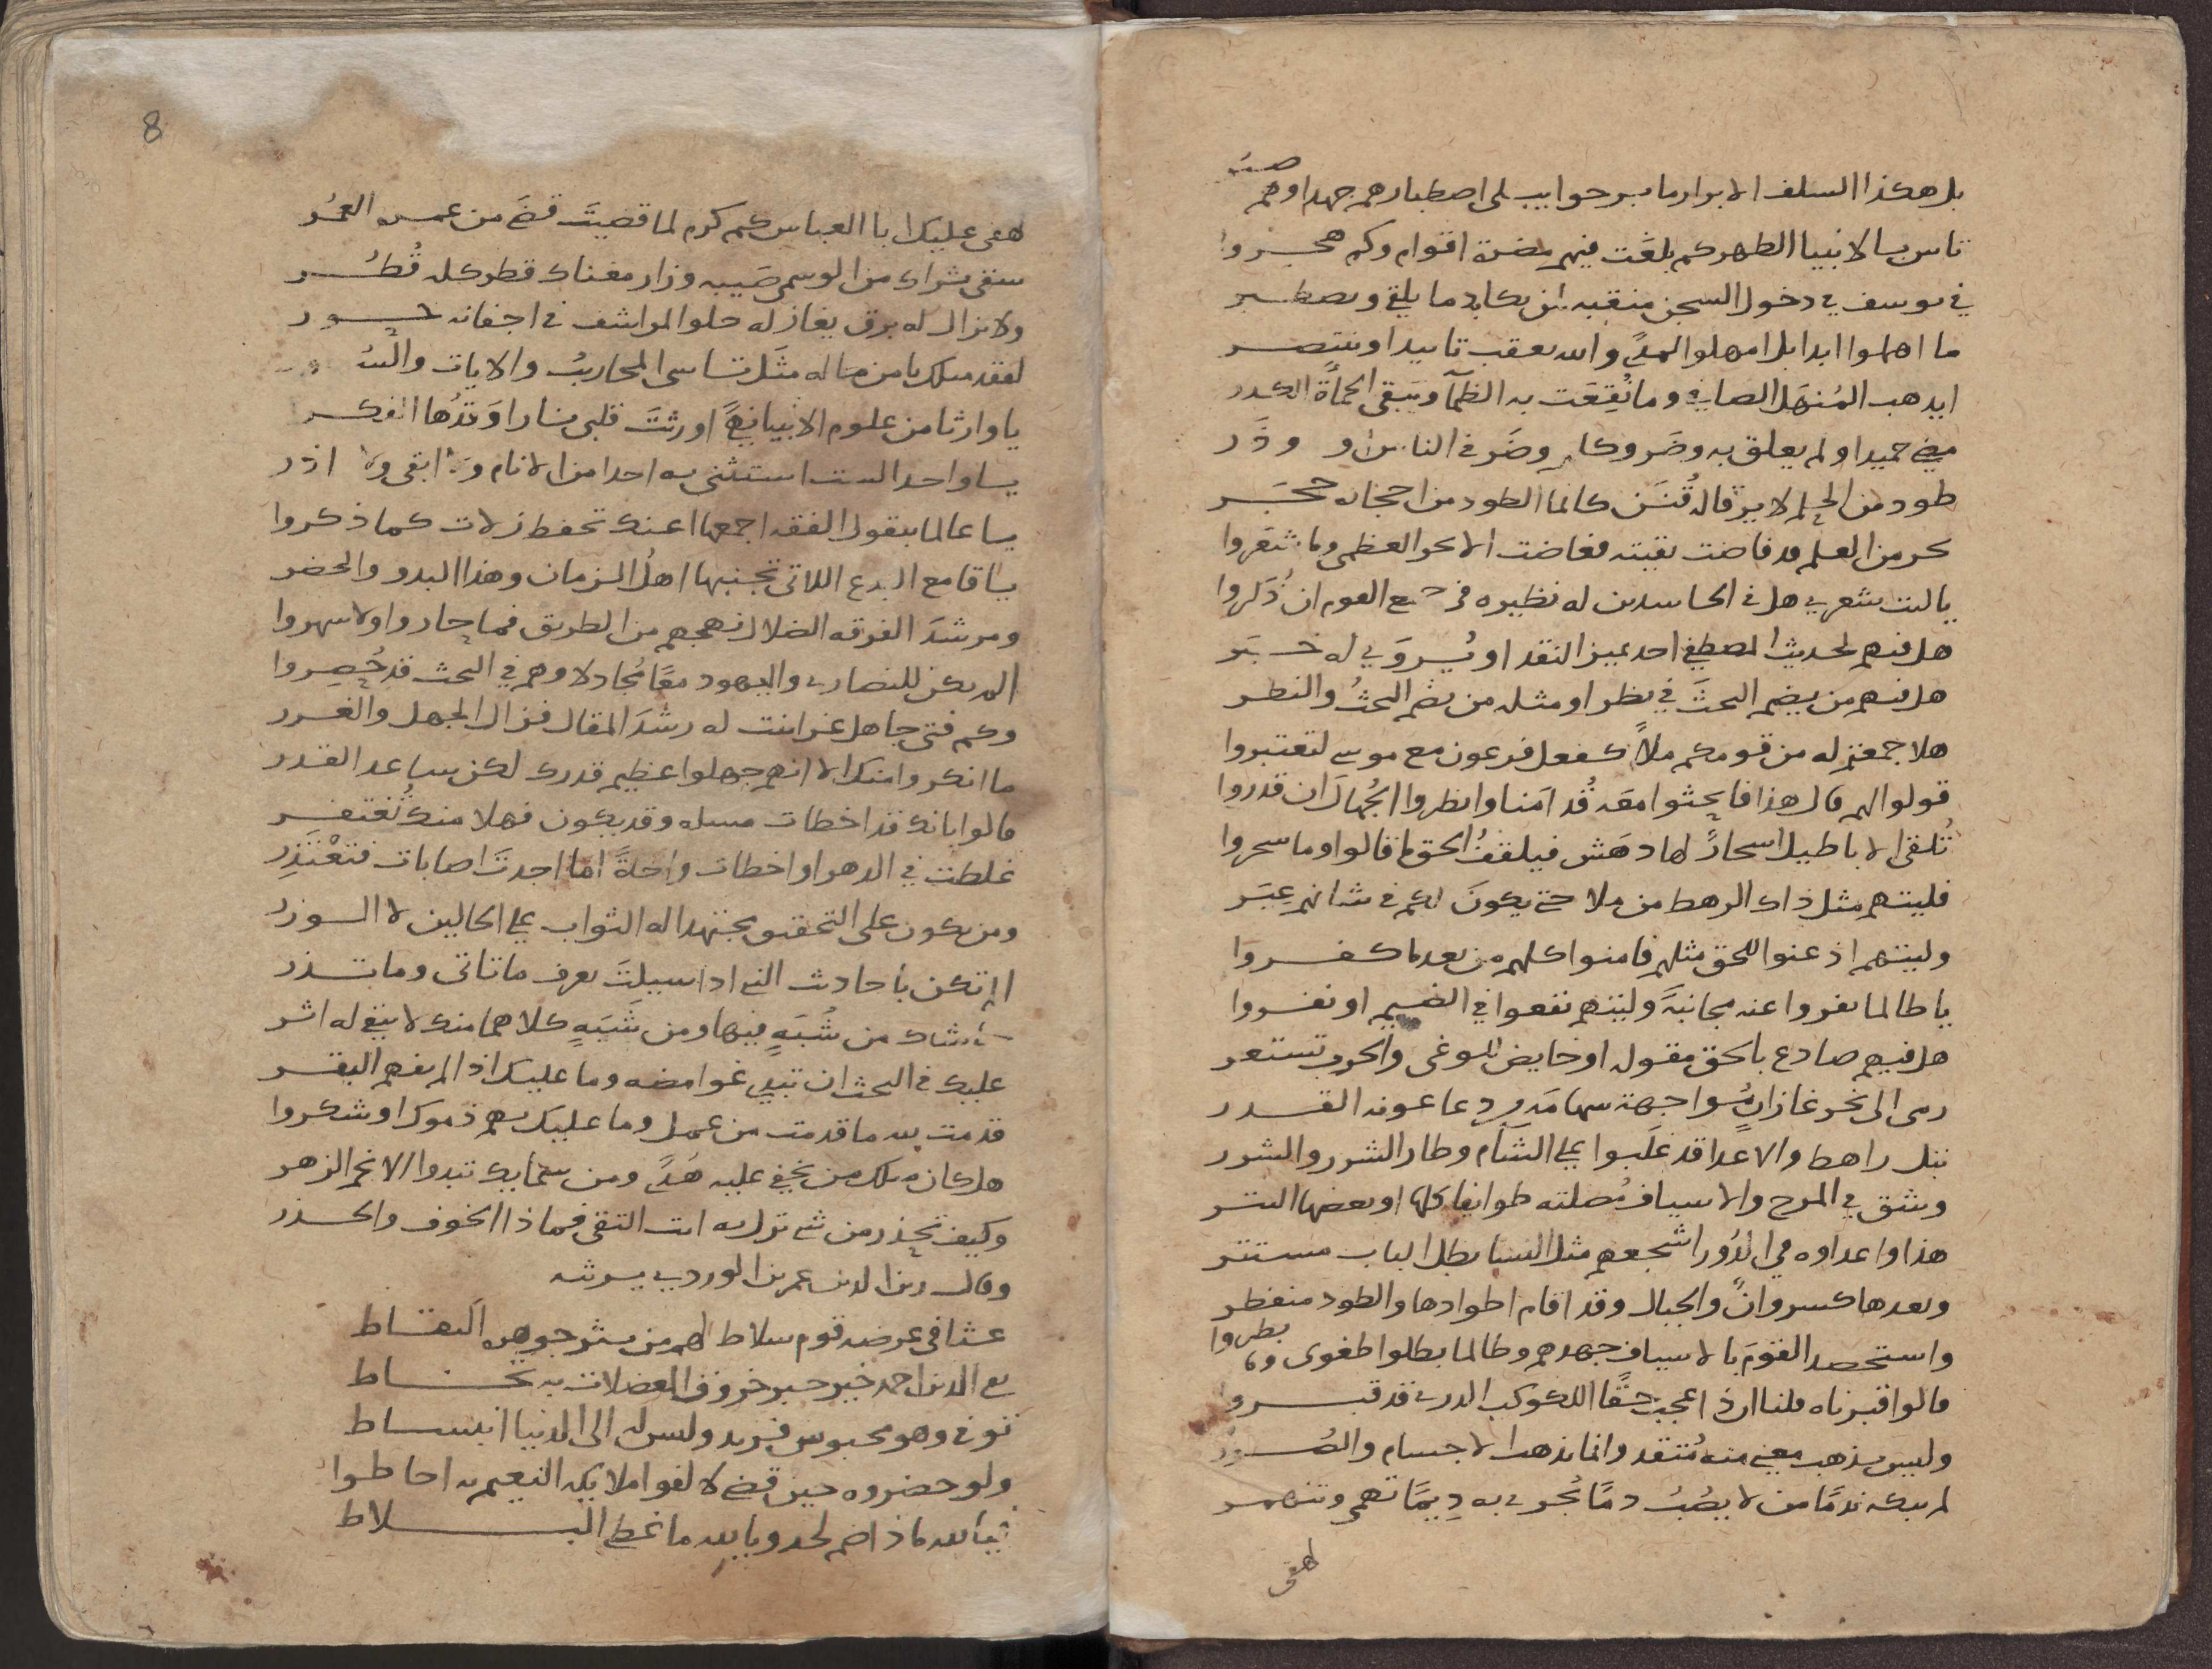 بل هكذا السلف الابرار ما برحوا يبلى اصطبارهم جهدا وهم صبر
تاس بالانبيا الطهر كم بلغت فيهم مضرة اقوام وكم هجروا
في يوسف في دخول السجن منقبة لمن يكابد ما يلقى ويصطبر
ما اهملوا ابدا بل امهلوا لمدًى والله يعقب تاييدا وينتصر
ايذهب المنهل الصافي وما نُقِعَت به الظمآ ويبقى الحمأة الكدر
مضى حميدا ولم يعلق به وضر وكلهم وضر في الناس او وذر
طود من الحلم لا يرقا له قُنَن كانما الطود من احجاره حجر
بحر من العلم قد فاضت بقيته فغاضت الابحر العظمى وما شعروا
يا ليت شعري هل في الحاسدين له نظيره في جميع القوم ان ذُكروا
هل فيهم لحديث المصطفى احد يميز النقد او يُروى له خبر
هل فيهم من يضم البحث في نظر او مثله من يضم البحثُ والنظر
هلا جمعتم له من قومكم ملأً كفعل فرعون مع موسى لتعتبروا
قولوا لهم قال هذا فابحثوا معه قُدامنا وانظروا الجُهال ان قدروا
تُلقى الاباطيل اسحارً لها دهش فيلقفُ الحق ما قالوا وما سحروا
فليتهم مثل ذاك الرهط من ملا حتى يكون لكم في شانهم عبر
وليتهم اذعنوا للحق مثلهم فامنوا كلهم من بعد ما كفروا
يا طالما نفروا عنه مجانبة وليتهم نفعوا في الضيم او نفروا
هل فيهم صادع بالحق مقوله او خايض للوغى والحرب تستعر
رمى الى نحر غازانٍ مُواجهة سهامه من دعا عونه القدر
بتل راهط والاعدا قد غلبوا على الشآم وطار الشرر والشرر
وشق في المرج والاسياف مُصلته طوايفا كلها او بعضها التتر
هذا واعداوه في الدُور اشجعهم مثل النسا بظل الباب مستتر
وبعدها كسروانً والجبال وقد اقام اطوادها والطود منفطر
واستحصد القومَ بالاسياف جهدهم وطالما بطلوا طغوى وما بطروا
قالوا قبرناه قلنا ان ذا عجبٌ حقًا اللكوكب الدري قد قبروا
وليس يذهب معنى منه مُتقد وانما تذهب الاجسام والصُور
لم يبكه ندمًا من لا يصُبُ دمًا تُجرى به دِيمًا تهمي وتنهمر
لهفي
8
لهفي عليك ابا العباس كم كرم لما قضيتَ قضَى من عمره العُمُر
سقى ثراك من الوسمي صَيبه وزار مغناك قطر كله قُطُر
ولا يزال له برق يغازله حلو المراشف في اجفانه حور
لفقد مثلك يا من ماله مثَل تاسى المحاريبُ والايات والسُور
يا وارثا من علوم الانبيا نهًى اورثتَ قلبي نارا وَقدُها الفكر
يا واحدا لست استثني به احدا من الانام ولا ابقى ولا اذر
يا عالما بنقول الفقه اجمعها اعنك تحفظ زلات كما ذكروا
يا قامع البدع اللاتي تجنبها اهلُ الزمان وهذا البدو والحضر
ومرشدَ الفرقه الضلال نهجهم من الطريق فما حاروا ولا سهروا
الم يكن للنصارى واليهود معًا مُجادلا وهم في البحث قد حُصِروا
وكم فتى جاهل غر ابنت له رشدَ المقال فزال الجهل والغرر
ما انكروا منك الا انهم جهلوا عظيم قدرك لكن ساعد القدر
قالوا بانك قد اخطات مسله وقد يكون فهلا منك تُغتفر
غلطت في الدهر او اخطات واحدةً اما اجدتَ اصابات فتعْتَذِر
ومن يكون على التحقيق مجتهدا له الثواب على الحالين لا الوزر
الم تكن باحاديث النبي اذا سيلتَ تعرف ما تاتي وما تذر
حاشاك من شُبَهٍ فيها ومن شَبَهٍ كلاهما منك لا يبقى له اثر
عليك في البحث ان تبدي غوامضه وما عليك اذا لم يفهم البقر
قدمت لله ما قدمت من عمل وما عليك بهم ذموك او شكروا
هل كان مثلك من يخفى عليه هُدًى ومن سمايك تبدوا الانجم الزهر
وكيف تحذر من شي تزل به انت التقي فماذا الخوف والحذر
وقال زين الدين عمر بن الوردي يرثيه
عثا في عرضه قوم سلاط لهم من نثر جوهره التقاط
تقي الدين احمد خير حبر خروق المعضلات به تخاط
توفى وهو محبوس فريد وليس له الى الدنيا انبساط
ولو حضروه حين قضى لالفوا ملايكه النعيم به احاطوا
فيا لله ماذا ضم لحد ويا لله ما غطى البلاط